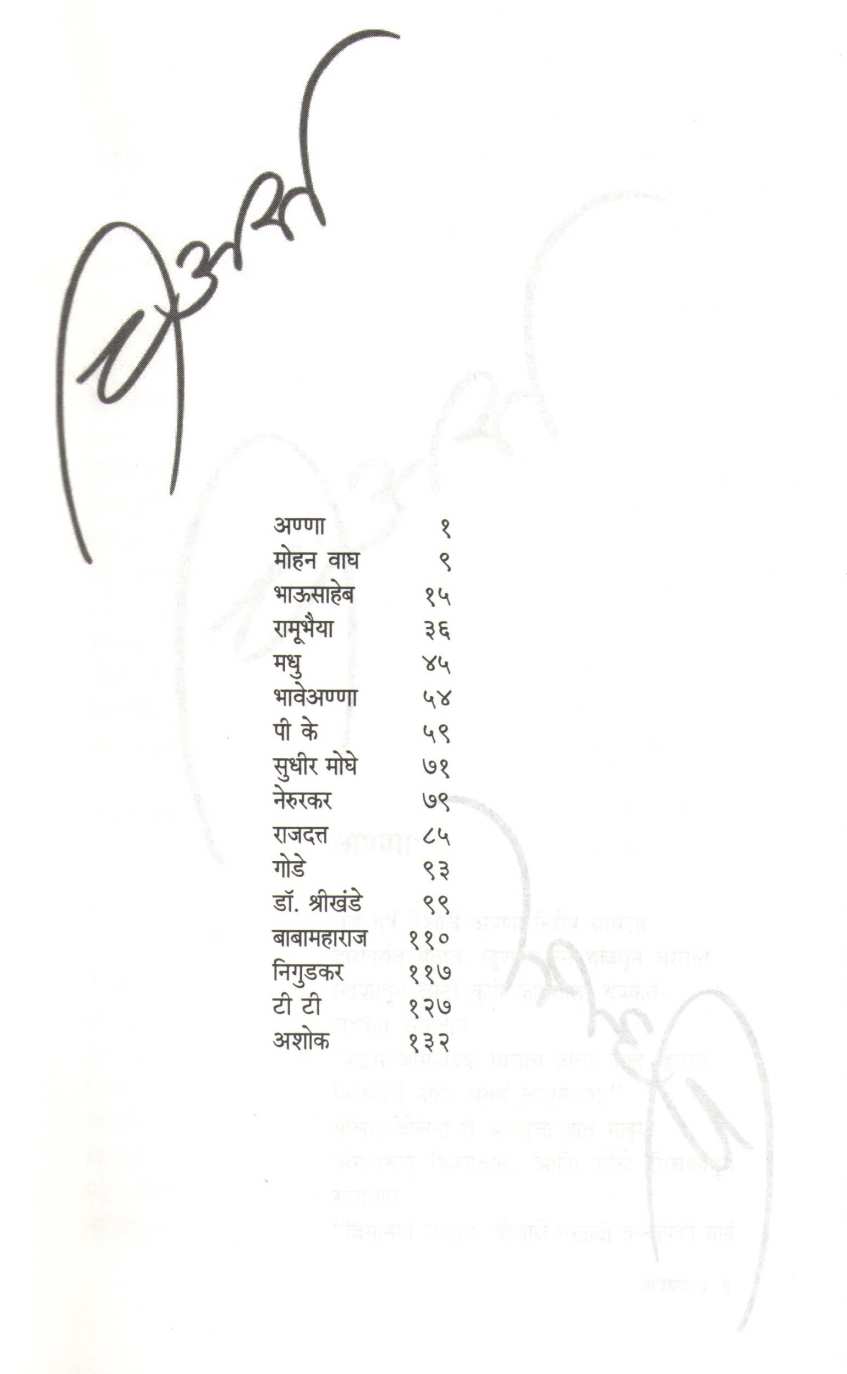 अण्णा १
मोहन वाघ ९
भाऊसाहेब १५
रामूभैया ३६
मधु ४५
भावेअण्णा ५४
पी के ५९
सुधीर मोघे ७१
नेरुरकर ७९
राजदत्त ८५
गोडे ९३
डॉ. श्रीखंडे ९९
बाबामहाराज ११०
निगुडकर ११७
टी टी १२७
अशोक १३२